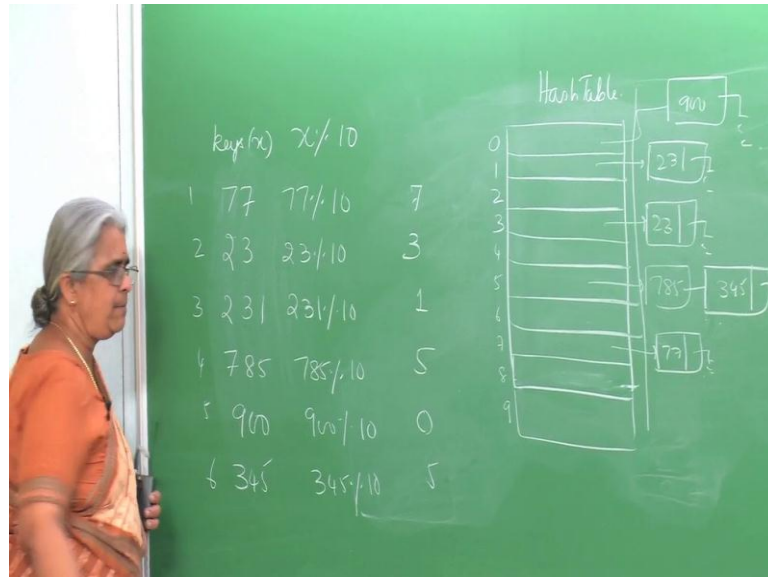 keys(x) x%10
1 77 77%10 7
2 23 23%10 3
3 231 231%10 1
4 785 785%10 5
5 900 900%10 0
6 345 345%10 5
Hash Table
0 900
1 231
2
3 23
4
5 785 345
6
7 77
8
9